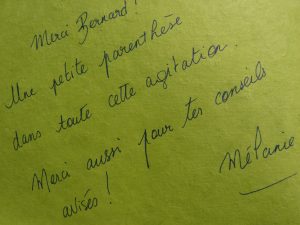 Merci Bernard !
Une petite parenthèse
dans toute cette agitation.
Merci aussi pour tes conseils
avisés !
Mélanie